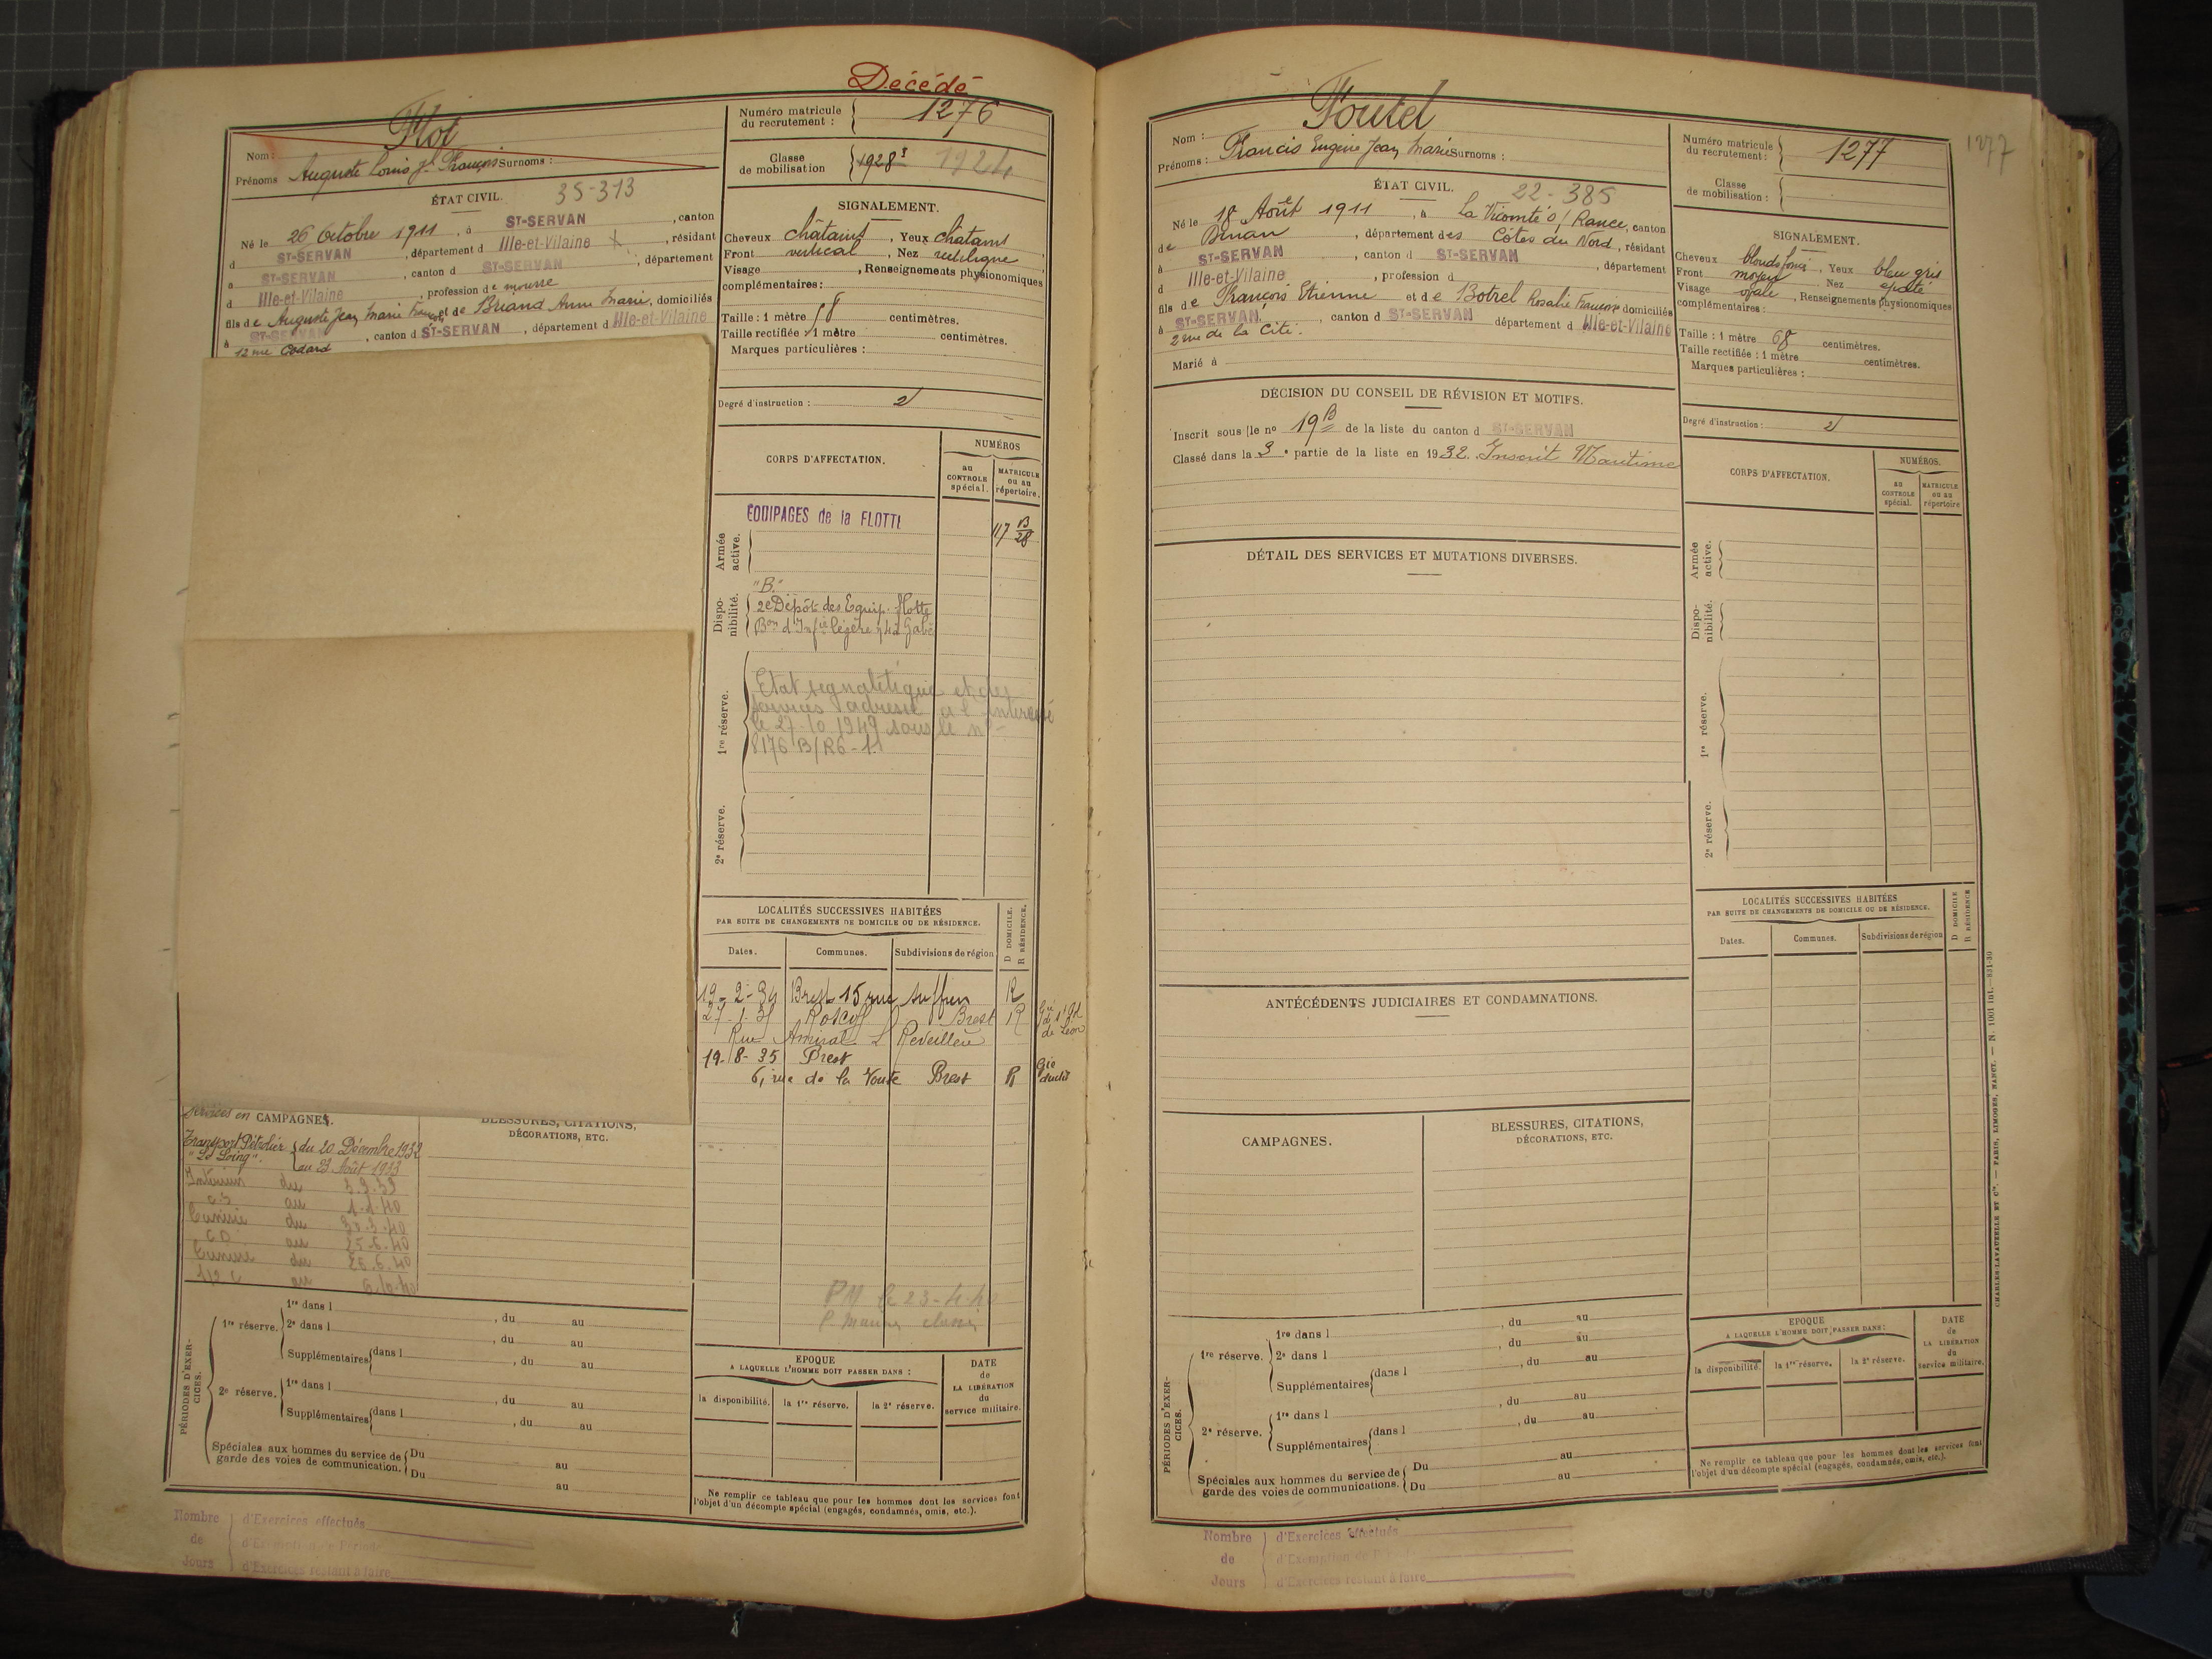 Décédé
Nom : Flot
Prénoms Auguste Louis Jh François Surnoms :
Numéro matricule du recrutement : 1276
Classe de mobilisation 1928 1924
ÉTAT CIVIL. 35-313
Né le 26 Octobre 1911, à ST-SERVAN, canton
d ST-SERVAN, département d Ille-et-Vilaine, résidant
à ST-SERVAN, canton d ST-SERVAN, département
d Ille-et-Vilaine, profession de mousse
fils de Auguste Jean Marie François et de Briand Anne Marie, domiciliés
à ST-SERVAN, canton d ST-SERVAN, département d Ille-et-Vilaine
12 rue Godard
SIGNALEMENT.
Cheveux châtains, Yeux châtains
Front vertical, Nez rectiligne
Visage, Renseignements physionomiques
complémentaires :
Taille : 1 mètre 58 centimètres.
Taille rectifiée : 1 mètre centimètres.
Marques particulières :
Degré d'instruction : 2
CORPS D'AFFECTATION.
NUMÉROS
au CONTROLE spécial.
MATRICULE ou au répertoire.
Armée active.
ÉQUIPAGES de la FLOTTE
117 B/28
Disponibilité.
"B."
2e Dépôt des Equip. Flotte
Bon d'Infie légère
1re réserve.
Etat signalétique et des
services adressé à l'intéressé
le 27-10 1949 sous le n°
8176 B/R6-11
2e réserve.
LOCALITÉS SUCCESSIVES HABITÉES
PAR SUITE DE CHANGEMENTS DE DOMICILE OU DE RÉSIDENCE.
D DOMICILE.
R RÉSIDENCE.
Dates. Communes. Subdivisions de région
19-2-34 Brest 15 rue Suffren R
27-1-35 Roscoff Brest R
Rue Amiral Réveillère de Léon
19-8-35 Brest
6, rue de la Voute Brest R
Services en CAMPAGNES.
Transport Pétrolier du 20 Décembre 1932
"Le Loing". au 23 Août 1933
Intérieur du 3.9.39
CS au 1.1.40
Tunisie du 30.3.40
CD au 25.6.40
Tunisie du 25.6.40
1/2 C au 6.10.40
BLESSURES, CITATIONS,
DÉCORATIONS, ETC.
PM le 23-4-40
PÉRIODES D'EXERCICES.
1re réserve. 1re dans l, du au
2e dans l, du au
Supplémentaires dans l, du au
2e réserve. 1re dans l, du au
Supplémentaires dans l, du au
Spéciales aux hommes du service de garde des voies de communication. Du au
Du au
EPOQUE
A LAQUELLE L'HOMME DOIT PASSER DANS :
la disponibilité. la 1re réserve. la 2e réserve.
DATE de LA LIBÉRATION du service militaire.
Ne remplir ce tableau que pour les hommes dont les services font
l'objet d'un décompte spécial (engagés, condamnés, omis, etc.).
Nombre de Jours
d'Exercices effectués
d'Exemption de Période
d'Exercices restant à faire
Nom : Foutel
Prénoms : Francis Eugène Jean Marie Surnoms :
Numéro matricule du recrutement : 1277
1277
Classe de mobilisation :
ÉTAT CIVIL. 22-385
Né le 18 Août 1911, à La Vicomté s/ Rance, canton
de Dinan, département des Côtes du Nord, résidant
à ST-SERVAN, canton d ST-SERVAN, département
d Ille-et-Vilaine, profession d
fils de François Etienne et de Botrel Rosalie Françoise domiciliés
à ST-SERVAN, canton d ST-SERVAN département d Ille-et-Vilaine
2 rue de la Cité.
Marié à
SIGNALEMENT.
Cheveux blonds foncé, Yeux bleu gris
Front moyen, Nez épaté
Visage ovale, Renseignements physionomiques
complémentaires :
Taille : 1 mètre 68 centimètres.
Taille rectifiée : 1 mètre centimètres.
Marques particulières :
Degré d'instruction : 2
DÉCISION DU CONSEIL DE RÉVISION ET MOTIFS.
Inscrit sous le no 19 B de la liste du canton d ST-SERVAN
Classé dans la 3e partie de la liste en 1932. Inscrit Maritime
DÉTAIL DES SERVICES ET MUTATIONS DIVERSES.
CORPS D'AFFECTATION.
NUMÉROS.
au CONTROLE spécial.
MATRICULE ou au répertoire
Armée active.
Disponibilité.
1re réserve.
2e réserve.
ANTÉCÉDENTS JUDICIAIRES ET CONDAMNATIONS.
LOCALITÉS SUCCESSIVES HABITÉES
PAR SUITE DE CHANGEMENTS DE DOMICILE OU DE RÉSIDENCE.
D DOMICILE
R RÉSIDENCE
Dates. Communes. Subdivisions de région
CAMPAGNES.
BLESSURES, CITATIONS,
DÉCORATIONS, ETC.
PÉRIODES D'EXERCICES.
1re réserve. 1re dans l, du au
2e dans l, du au
Supplémentaires dans l, du au
2e réserve. 1re dans l, du au
Supplémentaires dans l, du au
Spéciales aux hommes du service de garde des voies de communications. Du au
Du au
EPOQUE
A LAQUELLE L'HOMME DOIT PASSER DANS :
la disponibilité. la 1re réserve. la 2e réserve.
DATE de LA LIBÉRATION du service militaire.
Ne remplir ce tableau que pour les hommes dont les services font
l'objet d'un décompte spécial (engagés, condamnés, omis, etc.).
CHARLES-LAVAUZELLE ET Cie. — PARIS, LIMOGES, NANCY. — N. 1001 int.—831-30
Nombre de Jours
d'Exercices effectués
d'Exemption de Période
d'Exercices restant à faire